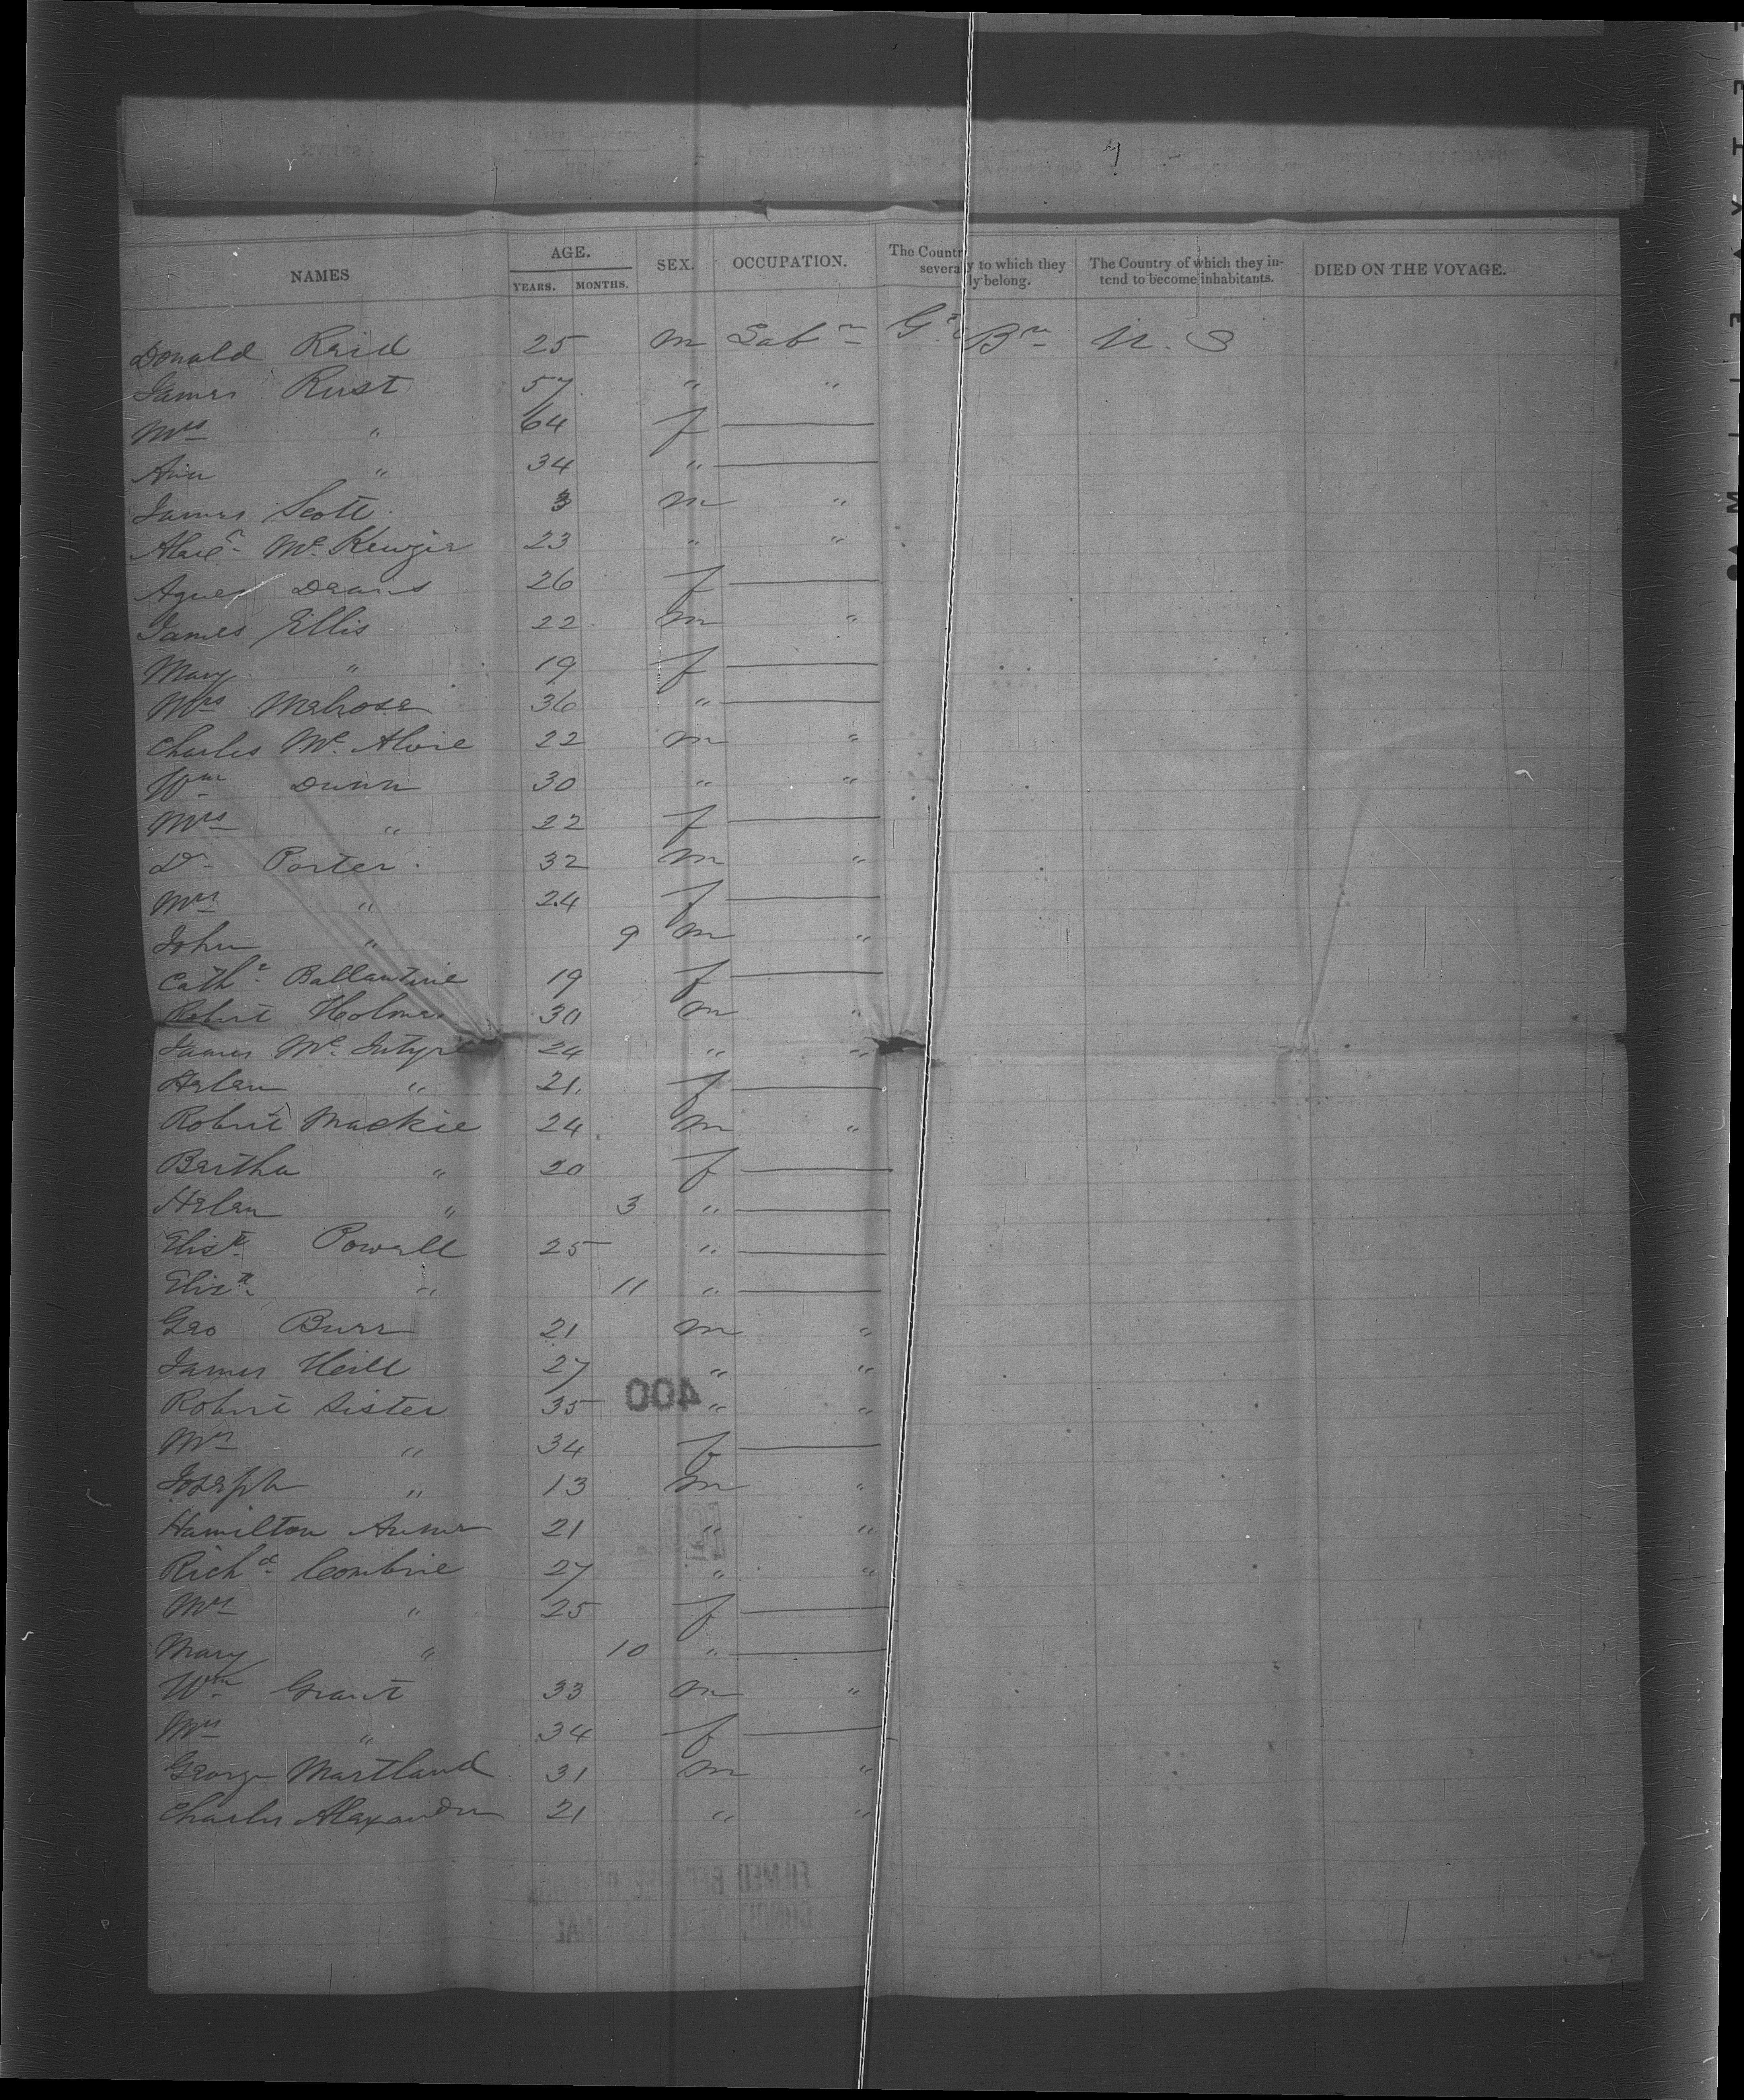 NAMES AGE. YEARS. MONTHS. SEX. OCCUPATION. The Country to which they severally belong. The Country of which they intend to become inhabitants. DIED ON THE VOYAGE.
Donald Reid 25 m Labr Gt Bn U. S
James Rust 57 " "
Mrs " 64 f —
Ann " 34 " —
James Scott 3 m "
Alexr McKenzie 23 " "
Agnes Deans 26 f —
James Ellis 22 m "
Mary " 19 f —
Mrs Melrose 36 " —
Charles Mc 22 m "
Wm Dunn 30 " "
Mrs " 22 f —
D Porter 32 m "
Mrs " 24 f —
John " 9 m "
Cathe Ballantine 19 f —
Robert Holmes 30 m "
James McIntyre 24 " "
Helen " 21 f —
Robert Mackie 24 m "
Bertha " 20 f —
Helen " 3 " —
Elisth Powell 25 " —
Elizth " 11 " —
Geo Burr 21 m "
James Neill 27 " "
400
Robert Sister 35 " "
Mrs " 34 f —
Joseph " 13 m "
Hamilton 21 " "
Richd Combrie 27 " "
Mrs " 25 f —
Mary " 10 " —
Wm Grant 33 m "
Mrs " 34 f —
George Martland 31 m "
Charles Alexander 21 " "